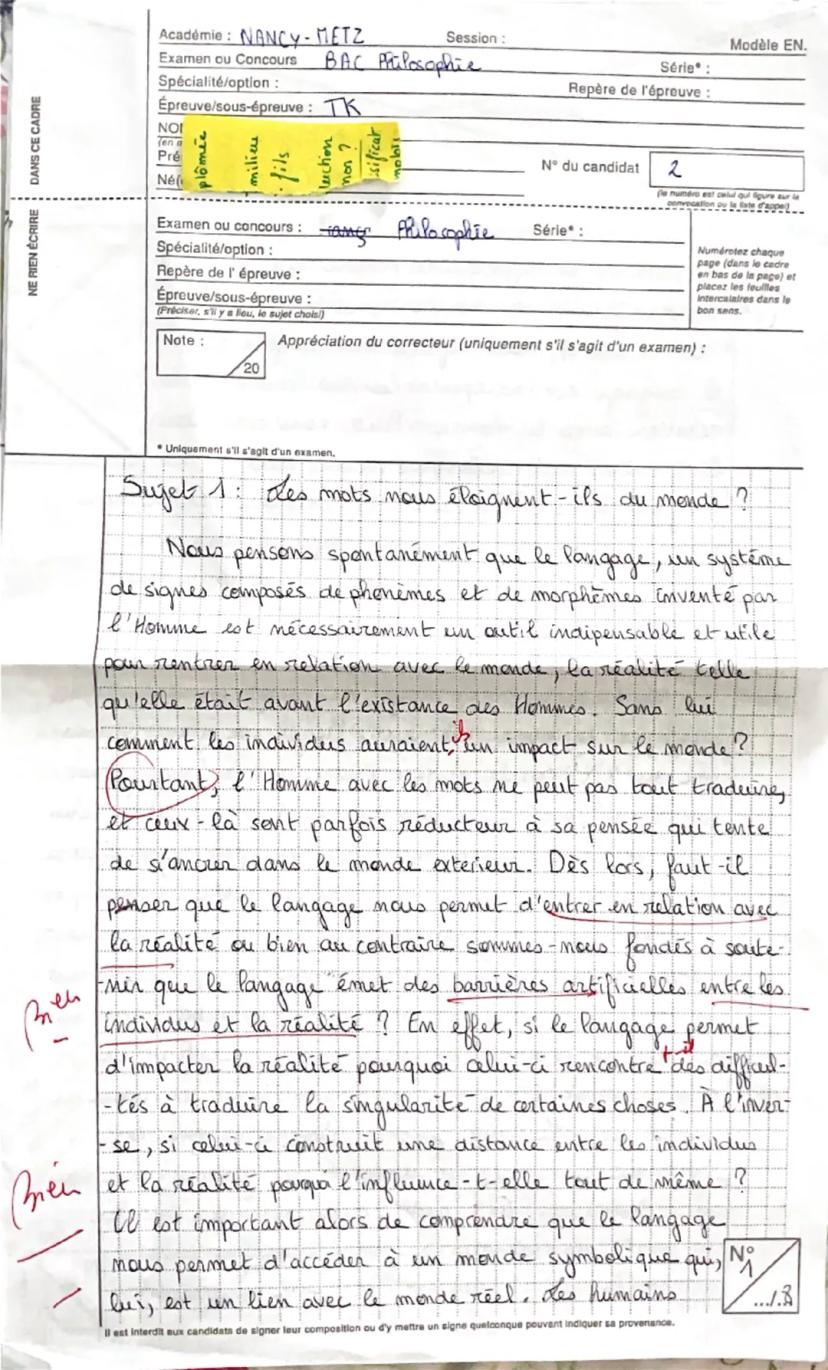 DANS CE CADRE
NE RIEN ÉCRIRE
Académie : NANCY-METZ Session :
Modèle EN.
Examen ou Concours BAC Philosophie Série* :
Spécialité/option : Repère de l'épreuve :
Épreuve/sous-épreuve : TK
NO
(en
Pré
Né(
plômée
milieu
fils
lection
non ?
sificat
mobts
N° du candidat 2
(le numéro est celui qui figure sur la
convocation ou la liste d'appel)
Examen ou concours : Philosophie Série* :
Spécialité/option :
Repère de l' épreuve :
Épreuve/sous-épreuve :
(Préciser, s'il y a lieu, le sujet choisi)
Numérotez chaque
page (dans le cadre
en bas de la page) et
placez les feuilles
intercalaires dans le
bon sens.
Note :
20
Appréciation du correcteur (uniquement s'il s'agit d'un examen) :
* Uniquement s'il s'agit d'un examen.
Sujet 1 : Les mots nous éloignent-ils du monde ?
Nous pensons spontanément que le langage, un système
de signes composés de phonèmes et de morphèmes inventé par
l'Homme est nécessairement un outil indipensable et utile
pour rentrer en relation avec le monde, la réalité telle
qu'elle était avant l'existance des Hommes. Sans lui
comment les individus auraient, un impact sur le monde ?
Pourtant, l'Homme avec les mots ne peut pas tout traduire,
et ceux-là sont parfois réducteur à sa pensée qui tente
de s'ancrer dans le monde exterieur. Dès lors, faut-il
penser que le langage nous permet d'entrer en relation avec
la réalité ou bien au contraire sommes-nous fondés à soute-
-nir que le langage émet des barrières artificielles entre les
bien
individus et la réalité ? En effet, si le langage permet
d'impacter la réalité pourquoi celui-ci rencontre t-il des difficul-
-tés à traduire la singularité de certaines choses. À l'inver-
-se, si celui-ci construit une distance entre les individus
bien
et la réalité pourquoi l'influence-t-elle tout de même ?
Il est important alors de comprendre que le langage
nous permet d'accéder à un monde symbolique qui,
lui, est un lien avec le monde réel. Les humains
N°
1
.../.8
Il est interdit aux candidats de signer leur composition ou d'y mettre un signe quelconque pouvant indiquer sa provenance.